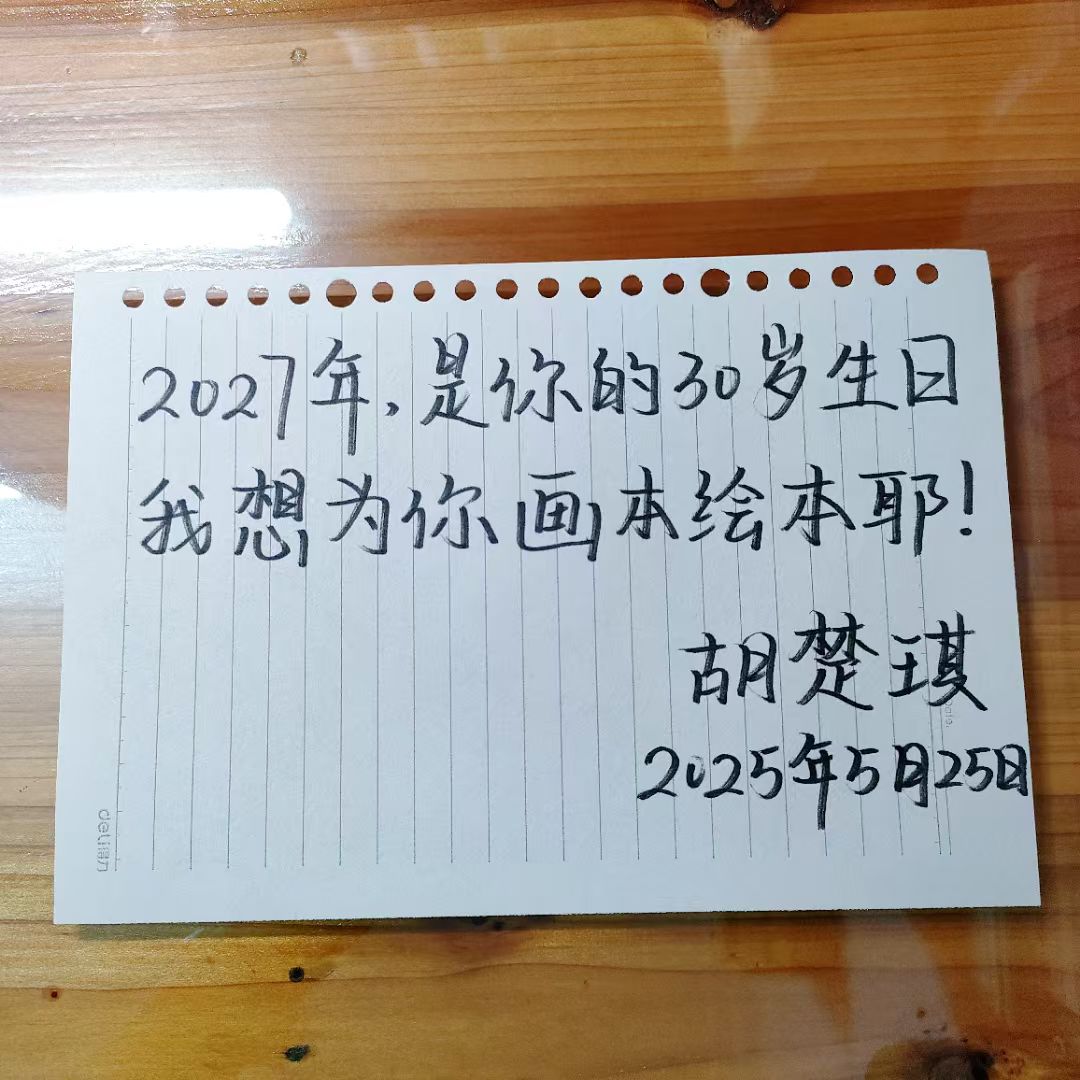 2027年,是你的30岁生日
我想为你画本绘本耶!
胡楚琪
2025年5月25日
deli得力
Date.